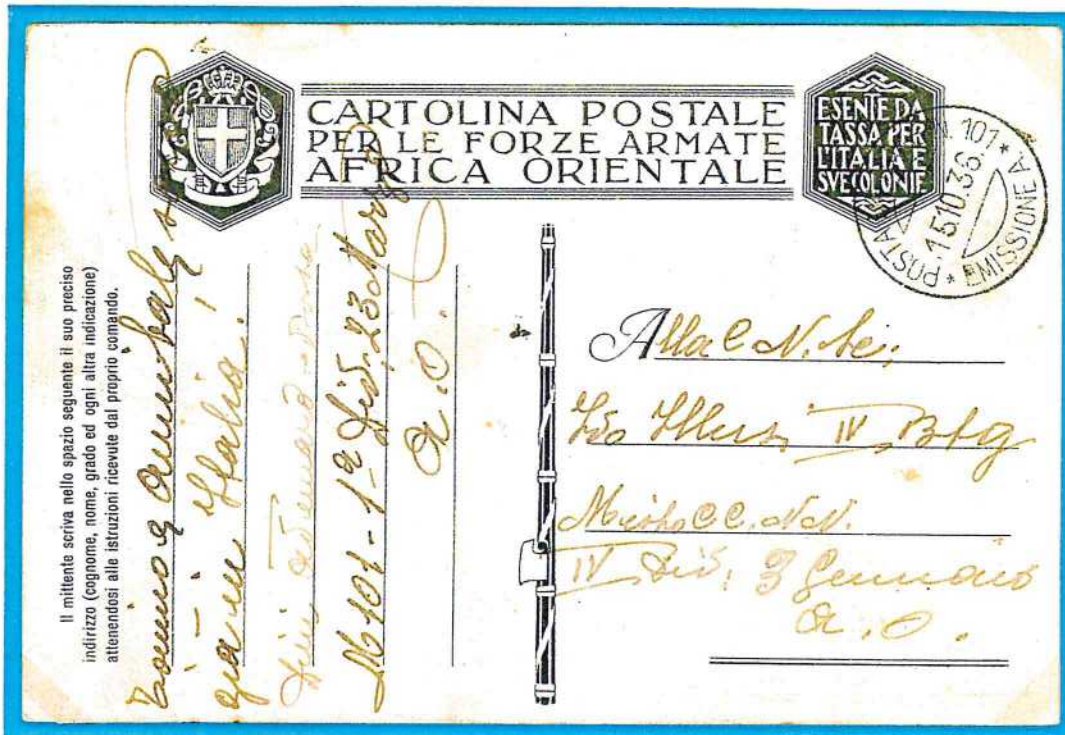 CARTOLINA POSTALE
PER LE FORZE ARMATE
AFRICA ORIENTALE
ESENTE DA
TASSA PER
L'ITALIA E
SVE COLONIE
POSTA N. 101
15.10.36.
* EMISSIONE A *
Il mittente scriva nello spazio seguente il suo preciso
indirizzo (cognome, nome, grado ed ogni altra indicazione)
attenendosi alle istruzioni ricevute dal proprio comando.
già in Italia!
N 101 - 1ª Div. 23 Marzo
A.O.
Alla C. N. sc.
IV Btg
Misto CC. NN.
IV Div. 3 Gennaio
A.O.